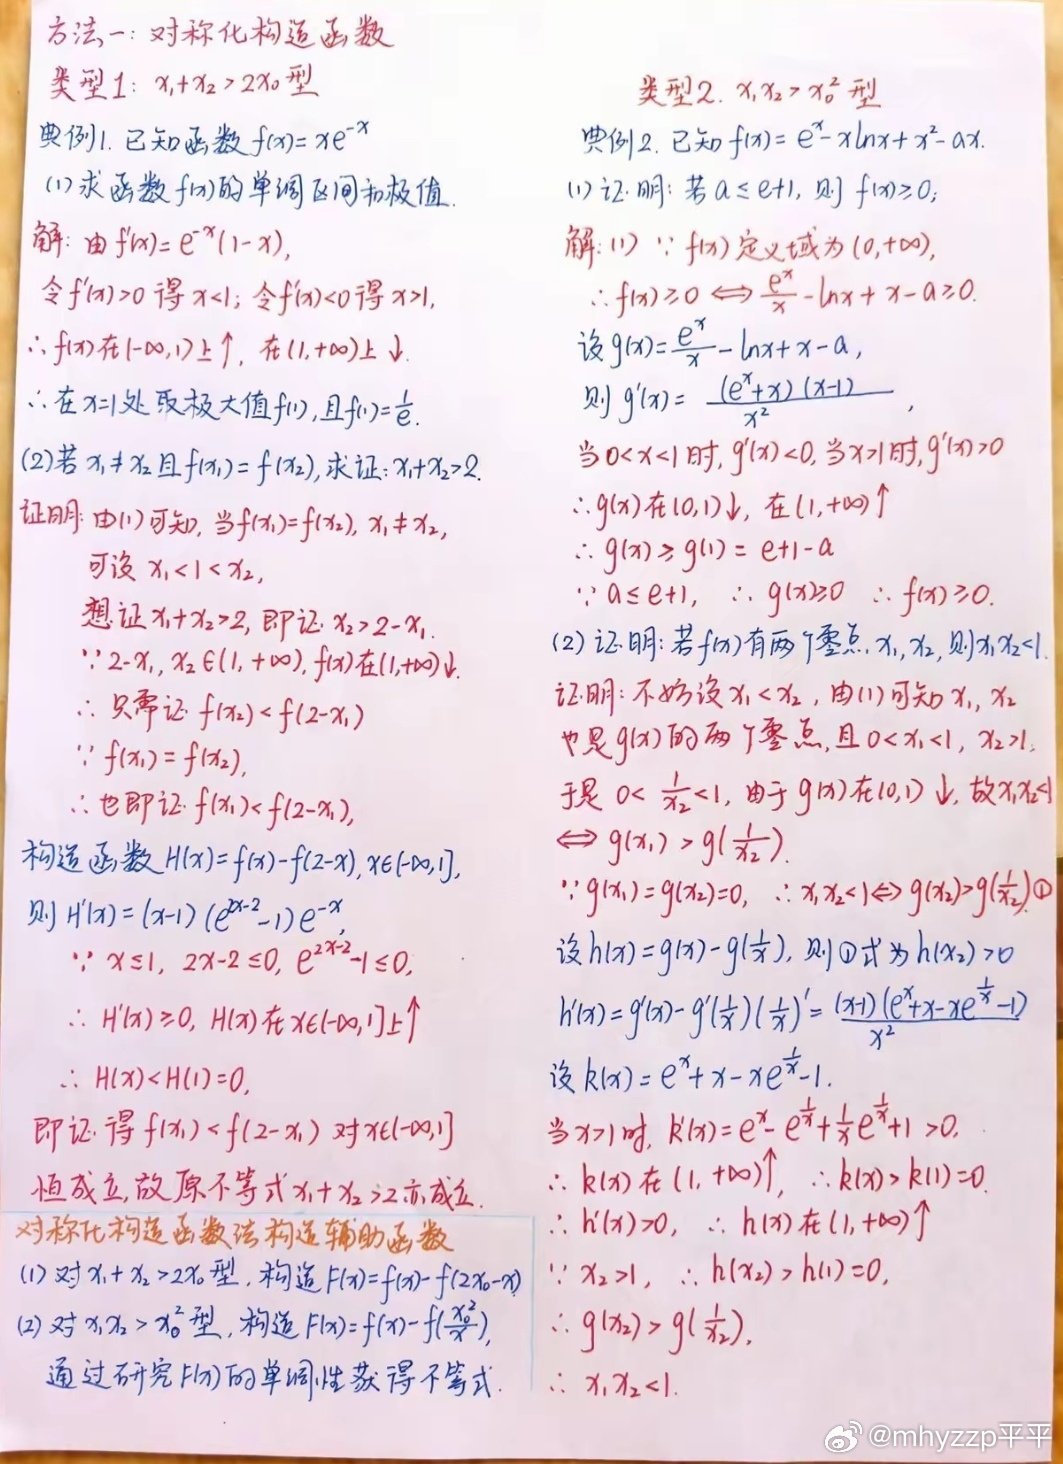 方法一：对称化构造函数
类型1：x₁+x₂>2x₀型
典例1. 已知函数f(x)=xe⁻ˣ
(1)求函数f(x)的单调区间和极值.
解：由f'(x)=e⁻ˣ(1-x),
令f'(x)>0得x<1；令f'(x)<0得x>1,
∴f(x)在(-∞,1)上↑, 在(1,+∞)上↓.
∴在x=1处取极大值f(1),且f(1)=1/e.
(2)若x₁≠x₂且f(x₁)=f(x₂),求证：x₁+x₂>2.
证明：由(1)可知,当f(x₁)=f(x₂), x₁≠x₂,
可设x₁<1<x₂,
想证x₁+x₂>2,即证x₂>2-x₁.
∵2-x₁,x₂∈(1,+∞),f(x)在(1,+∞)↓.
∴只需证f(x₂)<f(2-x₁)
∵f(x₁)=f(x₂),
∴也即证f(x₁)<f(2-x₁),
构造函数H(x)=f(x)-f(2-x),x∈(-∞,1],
则H'(x)=(x-1)(e²ˣ⁻²-1)e⁻ˣ,
∵x≤1, 2x-2≤0, e²ˣ⁻²-1≤0,
∴H'(x)≥0, H(x)在x∈(-∞,1]上↑
∴H(x)<H(1)=0,
即证得f(x₁)<f(2-x₁)对x∈(-∞,1]
恒成立,故原不等式x₁+x₂>2亦成立.
对称化构造函数法构造辅助函数
(1)对x₁+x₂>2x₀型,构造F(x)=f(x)-f(2x₀-x)
(2)对x₁x₂>x₀²型,构造F(x)=f(x)-f(x₀²/x),
通过研究F(x)的单调性获得不等式.
类型2. x₁x₂>x₀²型
典例2. 已知f(x)=eˣ-xlnx+x²-ax.
(1)证明：若a≤e+1,则f(x)≥0；
解：(1)∵f(x)定义域为(0,+∞),
∴f(x)≥0⟺eˣ/x-lnx+x-a≥0.
设g(x)=eˣ/x-lnx+x-a,
则g'(x)=(eˣ+x)(x-1)/x²,
当0<x<1时,g'(x)<0,当x>1时,g'(x)>0
∴g(x)在(0,1)↓, 在(1,+∞)↑
∴g(x)≥g(1)=e+1-a
∵a≤e+1, ∴g(x)≥0 ∴f(x)≥0.
(2)证明：若f(x)有两个零点x₁,x₂,则x₁x₂<1.
证明：不妨设x₁<x₂,由(1)可知x₁,x₂
也是g(x)的两个零点,且0<x₁<1, x₂>1,
于是0<1/x₂<1,由于g(x)在(0,1)↓,故x₁x₂<1
⟺g(x₁)>g(1/x₂).
∵g(x₁)=g(x₂)=0, ∴x₁x₂<1⟺g(x₂)>g(1/x₂),①
设h(x)=g(x)-g(1/x),则①式为h(x₂)>0
h'(x)=g'(x)-g'(1/x)(1/x)'=(x-1)(eˣ+x-xe^(1/x)-1)/x²
设k(x)=eˣ+x-xe^(1/x)-1.
当x>1时,k'(x)=eˣ-e^(1/x)+1/x e^(1/x)+1>0,
∴k(x)在(1,+∞)↑, ∴k(x)>k(1)=0.
∴h'(x)>0, ∴h(x)在(1,+∞)↑
∵x₂>1, ∴h(x₂)>h(1)=0,
∴g(x₂)>g(1/x₂),
∴x₁x₂<1.
@mhyzzp平平